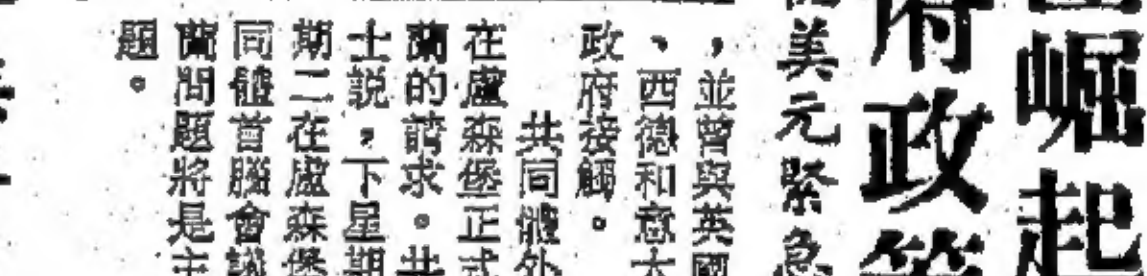 崛起
府政
美元緊急
，並曾與英國
、西德和意大
政府接觸。
共同體外
在盧森堡正式
蘭的請求。共
士說，下星期
期二在盧森堡
同體首腦會議
蘭問題將是主
題。